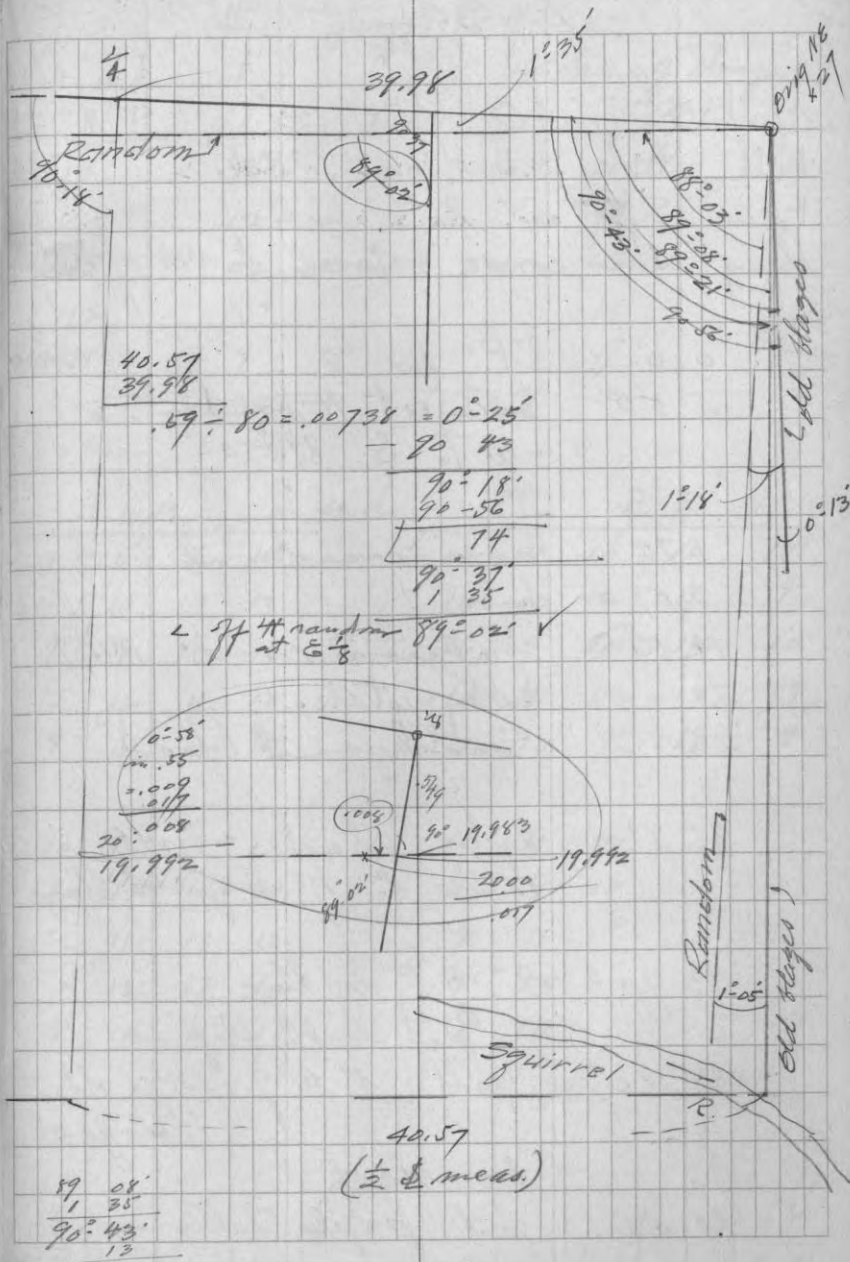 1/4
39.98
1°-35'
Orig. NE
27
Random
90°-18'
90 37
89°-02'
88°-03'
89°-08'
89°-21'
90°-43'
90-56'
Old blazes
40.57
39.98
.59 ÷ 80 = .00738 = 0°-25'
90 43
90°-18'
90-56
74
90°-37'
1 35
89°-02' ✓
∠ off # random
at E 1/8
1°-18'
0°-13'
0°-58'
in .55
= .009
.017
20: .008
19.992
1/8
.549
.008
90°
19.983
19.992
20.00
.017
89°-02'
Random
1°-05'
Old blazes
Squirrel
R.
40.57
(1/2 meas.)
89 08'
1 35
90°-43'
13